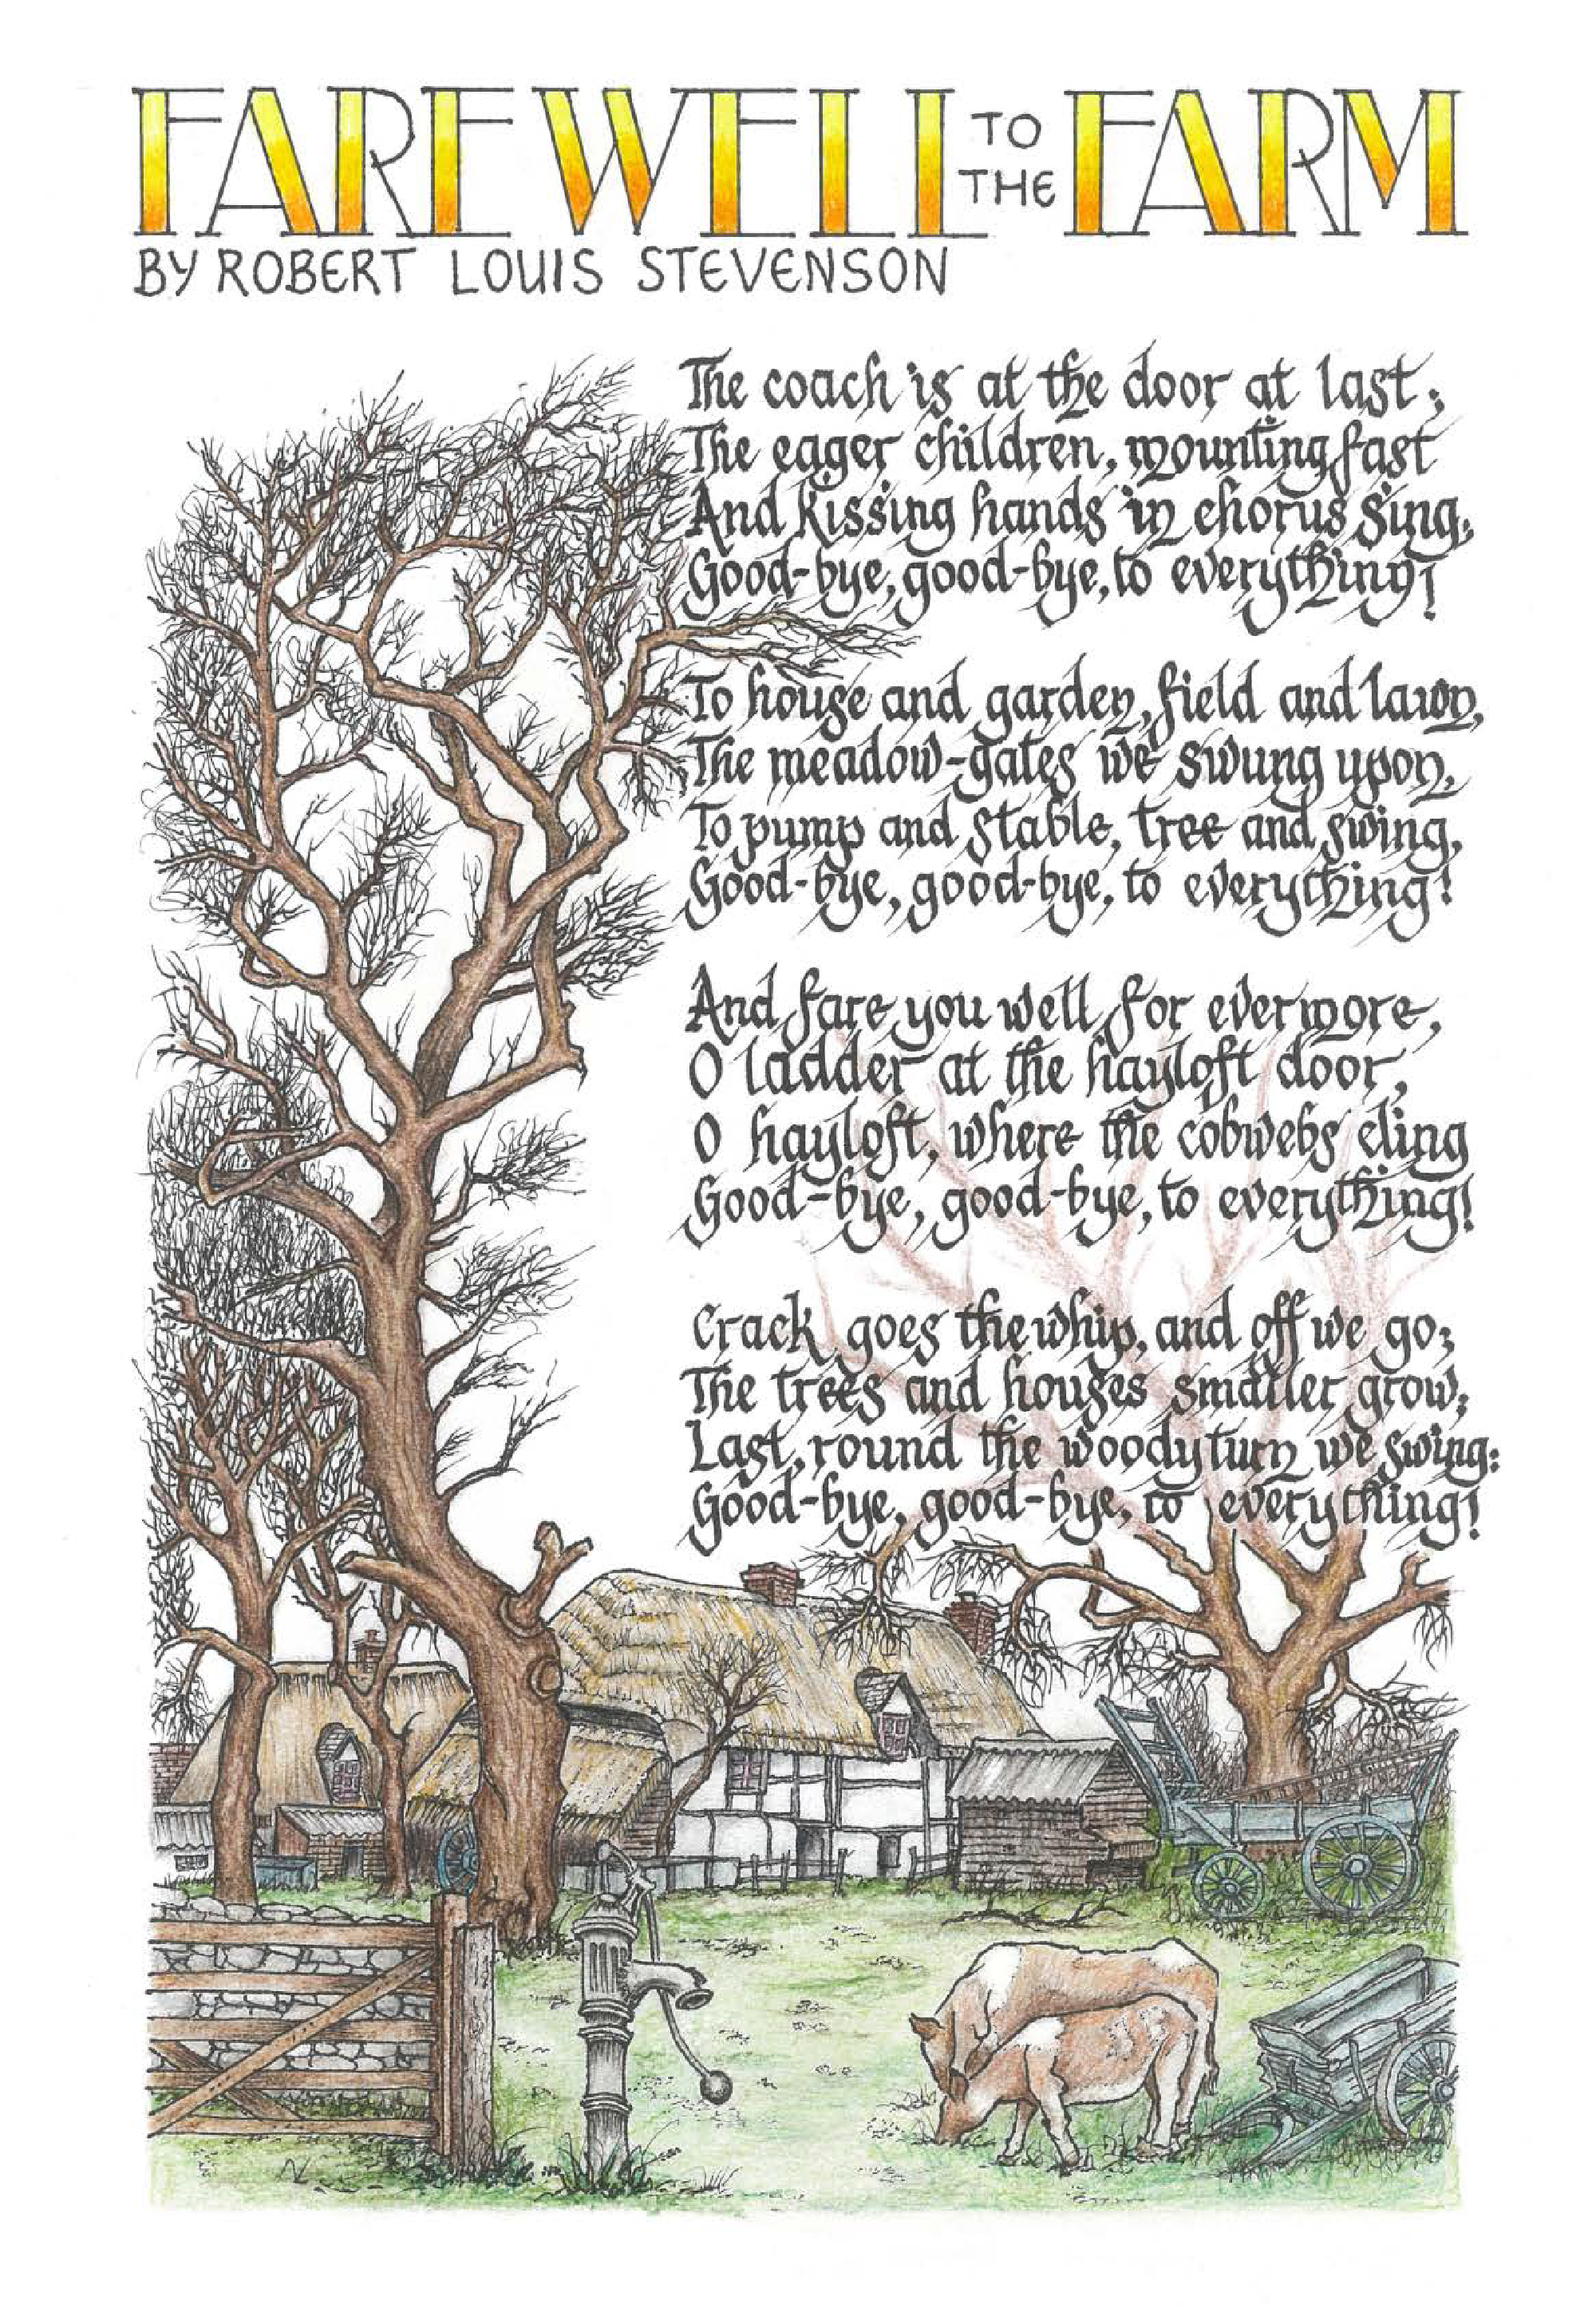 FAREWELL TO THE FARM
BY ROBERT LOUIS STEVENSON
The coach is at the door at last;
The eager children, mounting fast
And kissing hands in chorus sing;
Good-bye, good-bye, to everything!
To house and garden, field and lawn,
The meadow-gates we swung upon,
To pump and stable, tree and swing,
Good-bye, good-bye, to everything!
And fare you well for evermore,
O ladder at the hayloft door,
O hayloft, where the cobwebs cling
Good-bye, good-bye, to everything!
Crack goes the whip, and off we go;
The trees and houses smaller grow;
Last, round the woody turn we swing:
Good-bye, good-bye, to everything!